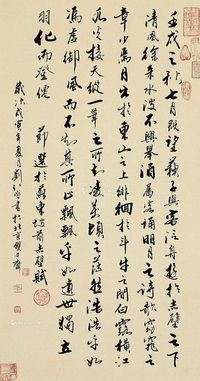 壬戌之秋七月既望蘇子與客泛舟游於赤壁之下
清風徐來水波不興舉酒屬客誦明月之詩歌窈窕之
章少焉月出於東山之上徘徊於斗牛之間白露橫江
水光接天縱一葦之所如凌萬頃之茫然浩浩乎如
馮虛御風而不知其所止飄飄乎如遺世獨立
羽化而登僊 節選於蘇東坡前赤壁賦
歲次戊寅年夏月劉書於北京齋